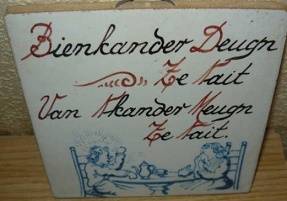 Bienkander Deugn
Ze Nait
Van Nkander Meugn
Ze Nait.